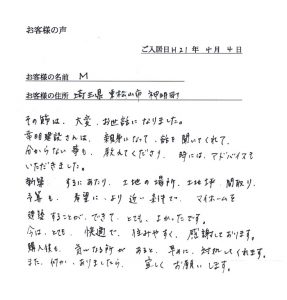 お客様の声
ご入居日 H21年 4月 4日
お客様の名前 M
お客様の住所 埼玉県 東松山市 神明町
その節は、大変、お世話になりました。
建設さんは、親身になって、話を聞いてくれて、
分からない事も、教えてくださり、時には、アドバイスも
いただきました。
新築 するにあたり、土地の場所、土地坪、間取り、
予算も、希望に、より近い、条件で、マイホームを
建築することが、できて、とても、よかったです。
今は、とても、快適で、住みやすく、感謝しております。
購入後も、気になる所が、あると、早めに、対処してくれます。
また、何か、ありましたら、宜しくお願いします。